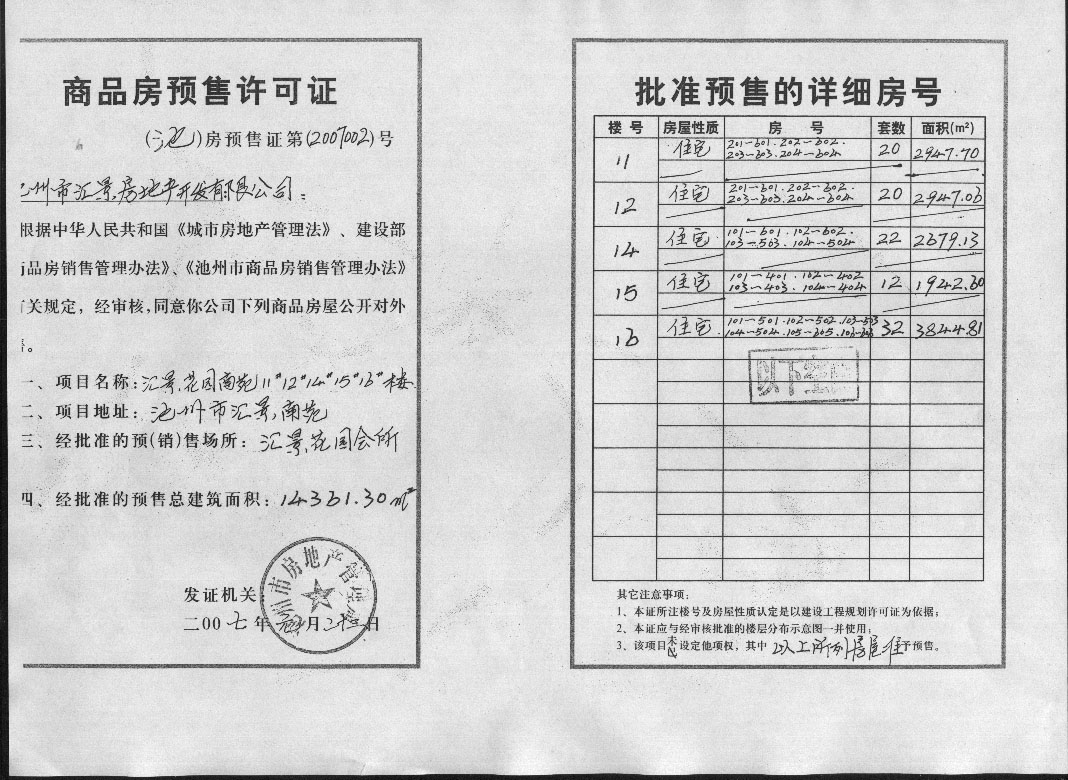 商品房预售许可证
(池)房预售证第(2007002)号
州市汇景房地产开发有限公司：
根据中华人民共和国《城市房地产管理法》、建设部
品房销售管理办法》、《池州市商品房销售管理办法》
关规定，经审核，同意你公司下列商品房屋公开对外
。
一、项目名称：汇景花园南苑11#12#14#15#16#楼
二、项目地址：池州市汇景南苑
三、经批准的预(销)售场所：汇景花园会所
四、经批准的预售总建筑面积：14361.30㎡
发证机关：
州市房地产管理局
二00七年 月二十二日
批准预售的详细房号
楼号 房屋性质 房号 套数 面积(m²)
11 住宅 201-601.202-602. 20 2947.70
203-603.204-604
12 住宅 201-601.202-602. 20 2947.06
203-603.204-604
14 住宅 101-601.102-602. 22 2679.13
103-503.104-504
15 住宅 101-401.102-402 12 1942.60
103-403.104-404
16 住宅 101-501.102-502.103-503 32 3844.81
104-504.105-605.106-606
以下空白
其它注意事项：
1、本证所注楼号及房屋性质认定是以建设工程规划许可证为依据；
2、本证应与经审核批准的楼层分布示意图一并使用；
3、该项目未设定他项权，其中以上所列房屋准予预售。